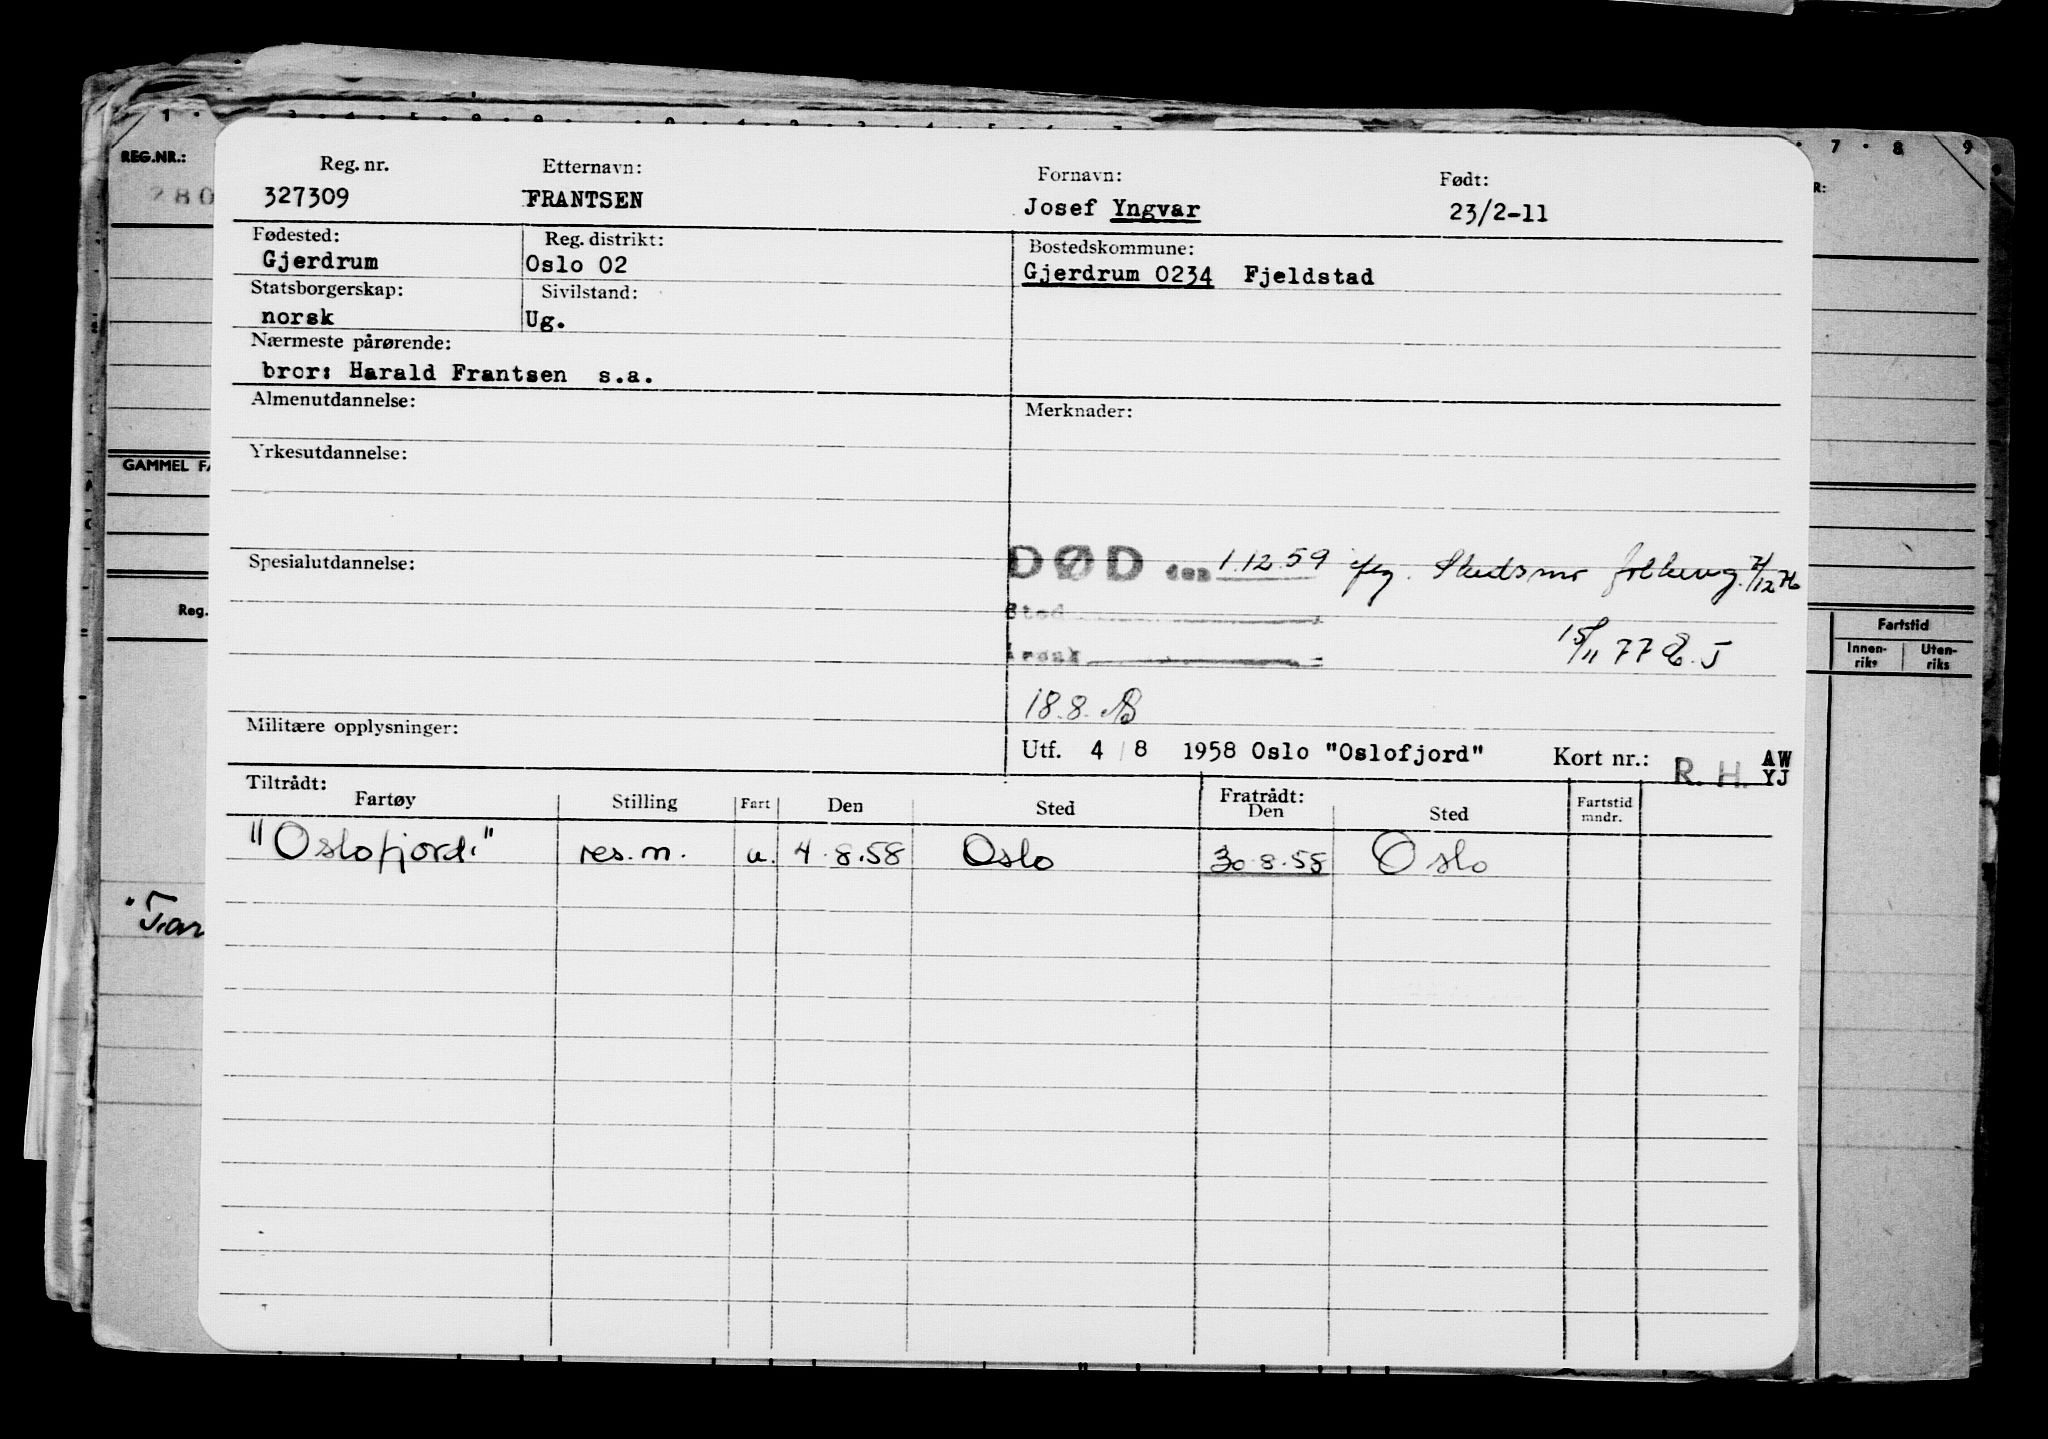 REG.NR.:
280
Reg. nr. Etternavn: Fornavn: Født:
327309 FRANTSEN Josef Yngvar 23/2-11
Fødested: Reg. distrikt: Bostedskommune:
Gjerdrum Oslo 02 Gjerdrum 0234 Fjeldstad
Statsborgerskap: Sivilstand:
norsk Ug.
Nærmeste pårørende:
bror: Harald Frantsen s.a.
Almenutdannelse: Merknader:
GAMMEL FA
Yrkesutdannelse:
Spesialutdannelse:
DØD den 1.12.59 Skedsmo folkereg. 7/12 76
Sted
Årsak
15/11 77
18.8.
Reg.
Fartstid
Innen-riks Uten-riks
Militære opplysninger:
Utf. 4/8 1958 Oslo "Oslofjord" Kort nr.: R. H. AW
YJ
Tiltrådt: Fratrådt:
Fartøy Stilling Fart Den Sted Den Sted Fartstid mndr.
"Oslofjord" res.m. u. 4.8.58 Oslo 30.8.58 Oslo